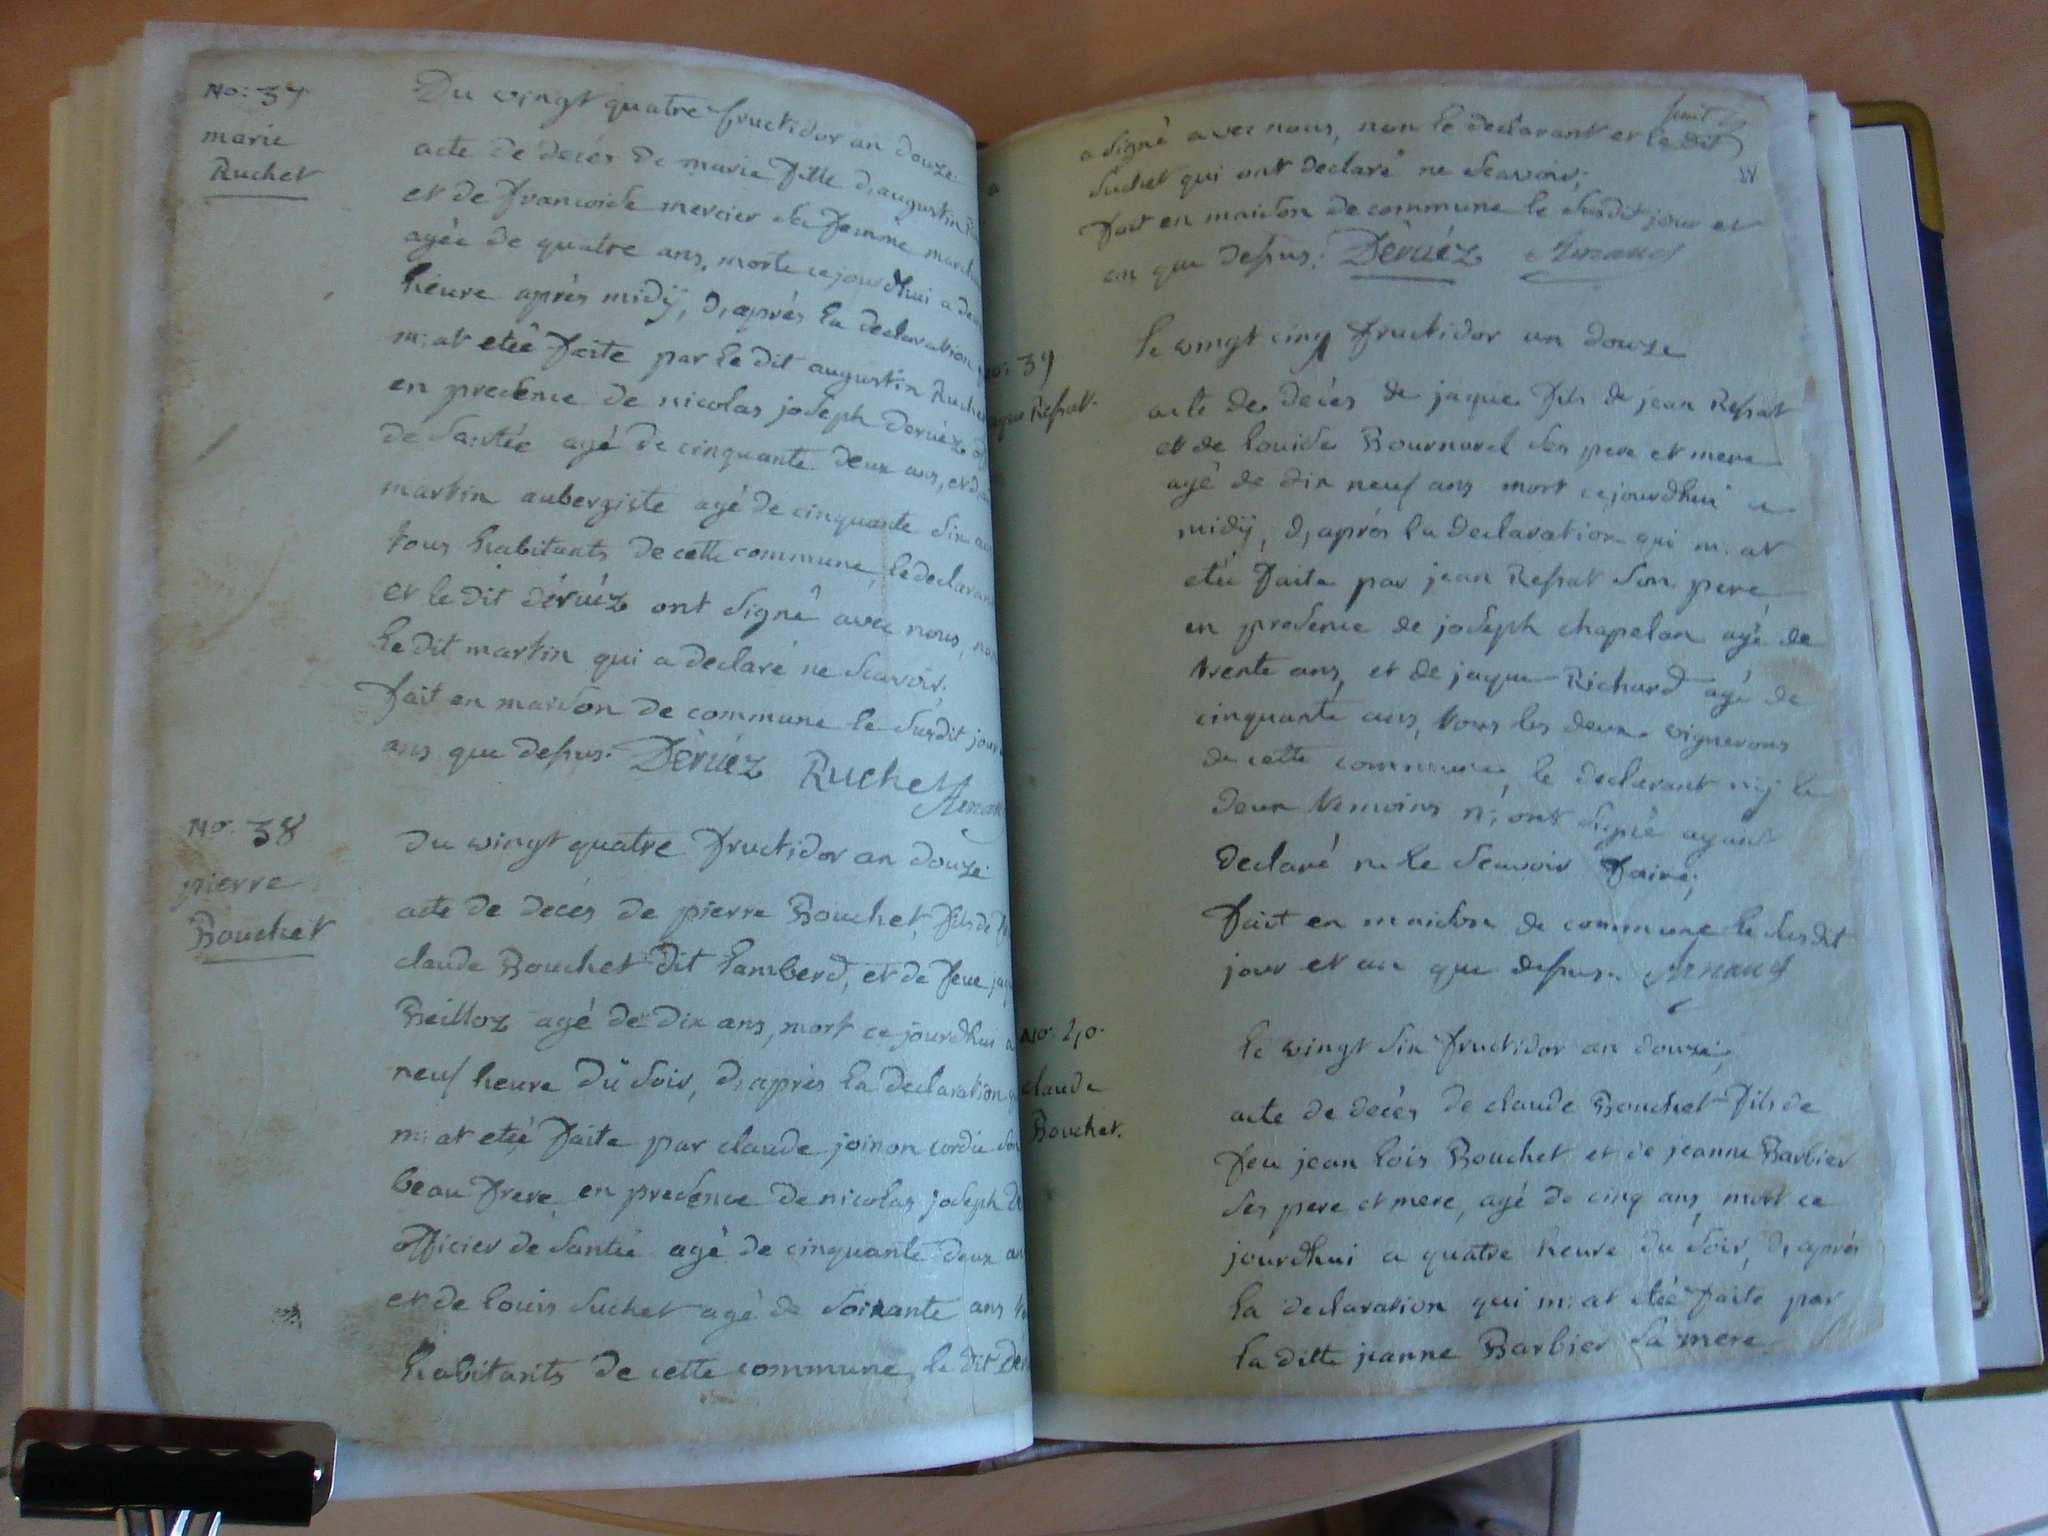 No: 37
marie
Ruchet
Du vingt quatre fructidor an douze
acte de decés de marie fille d,augustin
et de francoise mercier sa femme
agée de quatre ans, morte cejourdhui a
heure aprés midÿ, d,aprés la declaration
m:at eteé faite par le dit augustin Ruchet
en presence de nicolas joseph deruéz
de santée agé de cinquante deux ans,
martin aubergiste agé de cinquante six
tous habitants de cette commune, le declarant
et le dit déruéz ont signé avec nous, non
le dit martin qui a declaré ne scavoir.
fait en maison de commune le susdit jour
ans que desus. Déruéz Ruchet Arnaud
No. 38
pierre
Bouchet
Du vingt quatre fructidor an douze
acte de decés de pierre Bouchet, fils de
claude Bouchet dit Lamberd, et de feue
Beilloz agé de dix ans, mort ce jourdhui a
neuf heure du soir, d,aprés la declaration
m:at eteé faite par claude joinon cordié son
beau frere, en presence de nicolas joseph
officier de santée agé de cinquante deux
et de louis suchet agé de soixante ans
habitants de cette commune, le dit
a signé avec nous, non le declarant et le dit
suchet qui ont declaré ne scavoir;
fait en maison de commune le susdit jour et
an que desus. Déruéz Arnaud
No: 39
jaque Resat.
le vingt cinq fructidor an douze
acte de decés de jaque fils de jean Resat
et de louise Bournarel ses pere et mere
agé de dix neuf ans mort cejourdhui a
midÿ, d,aprés la declaration qui m:at
eteé faite par jean Resat son pere
en presence de joseph chapelon agé de
trente ans, et de jaque Richard agé de
cinquante ans, tous les deux vignerons
de cette commune, le declarant nij le
deux temoins n;ont signé ayant
declaré ne le scavoir faire;
fait en maison de commune le susdit
jour et an que desus. Arnaud
No. 40.
claude
Bouchet.
le vingt six fructidor an douze,
acte de decés de claude Bouchet fils de
feu jean lois Bouchet et de jeanne Barbier
ses pere et mere, agé de cinq ans, mort ce
jourdhui a quatre heure du soir, d,aprés
la declaration qui m:at eteé faite par
la ditte jeanne Barbier sa mere